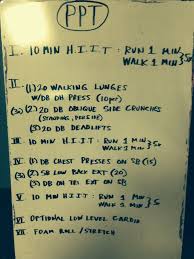 PPT
I. 10 MIN H.I.I.T: RUN 1 MIN
WALK 1 MIN } 5x
II. (1) 20 WALKING LUNGES
W/DB OH PRESS (10 per)
(3x) (2) 20 DB OBLIQUE SIDE CRUNCHES
(STANDING, PER SIDE)
(3) 20 DB DEADLIFTS
III. 10 MIN HIIT: RUN 1 MIN
WALK 1 MIN } 5x
IV. (1) DB CHEST PRESSES ON SB (15)
(3x) (2) SB LOW BACK EXT (20)
(3) DB TRI EXT ON SB
V. 10 MIN HIIT: RUN 1 MIN
WALK 1 MIN } 5x
VI OPTIONAL LOW LEVEL CARDIO
VII FOAM ROLL / STRETCH